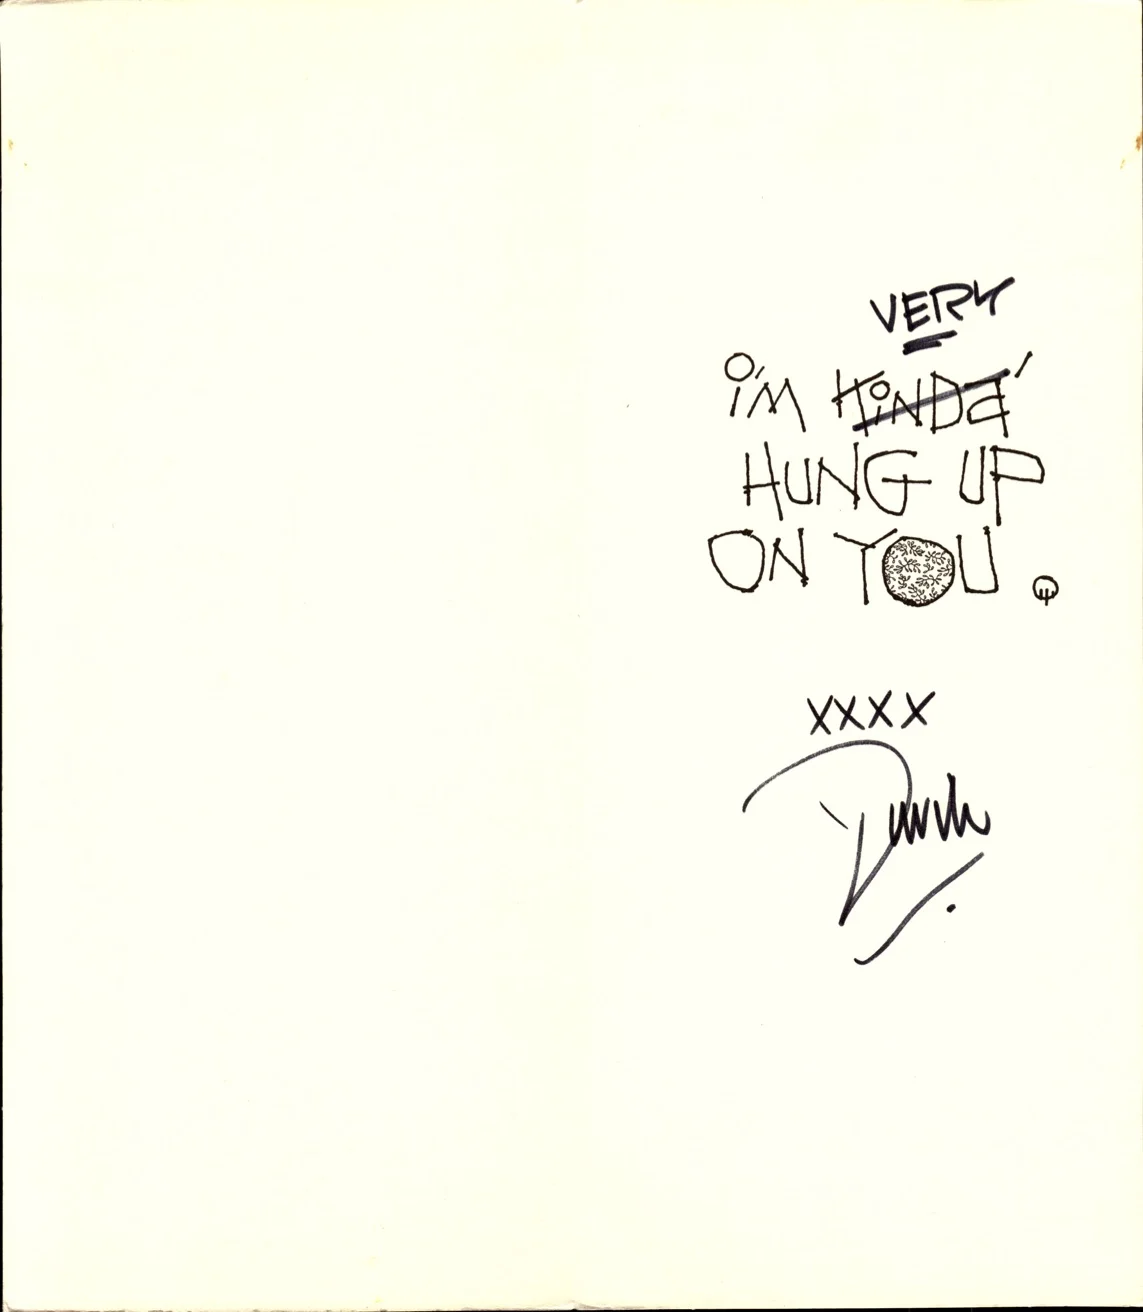 VERY
i'M KiNDA'
HUNG UP
ON YOU.
XXXX